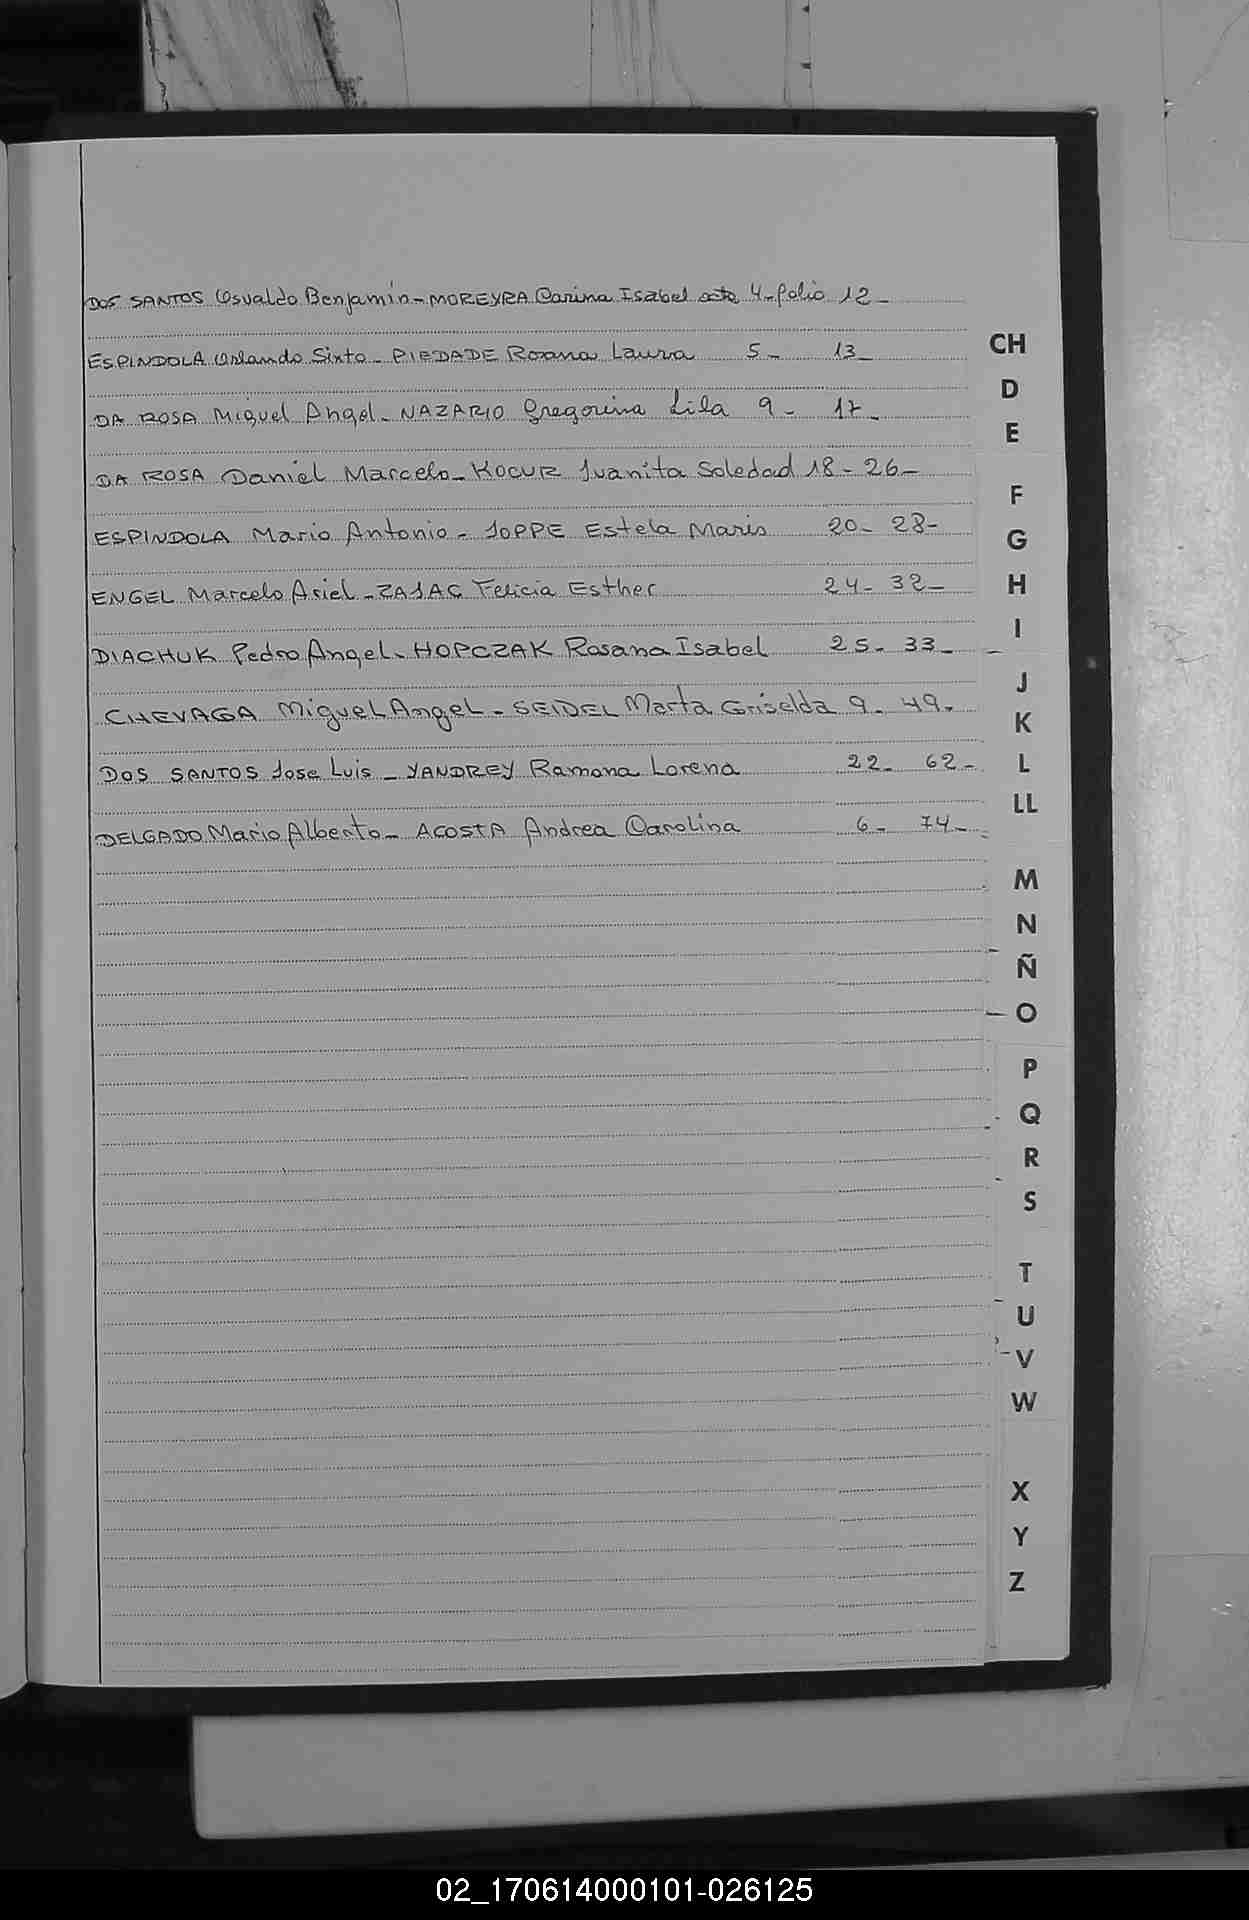 DOS SANTOS Osvaldo Benjamin - MOREYRA Carina Isabel acta 4 - folio 12 -
ESPINDOLA Orlando Sixto - PIEDADE Roxana Laura 5 - 13 -
DA ROSA Miguel Angel - NAZARIO Gregorina Lila 9 - 17 -
DA ROSA Daniel Marcelo - KOCUR Juanita Soledad 18 - 26 -
ESPINDOLA Mario Antonio - JOPPE Estela Maris 20 - 28 -
ENGEL Marcelo Ariel - ZAJAC Felicia Esther 24 - 32 -
DIACHUK Pedro Angel - HOPCZAK Rosana Isabel 25 - 33 -
CHEVAGA Miguel Angel - SEIDEL Marta Griselda 9 - 49 -
DOS SANTOS Jose Luis - YANDREY Ramona Lorena 22 - 62 -
DELGADO Mario Alberto - ACOSTA Andrea Carolina 6 - 74 -
CH
D
E
F
G
H
I
J
K
L
LL
M
N
Ñ
O
P
Q
R
S
T
U
V
W
X
Y
Z
02_170614000101-026125